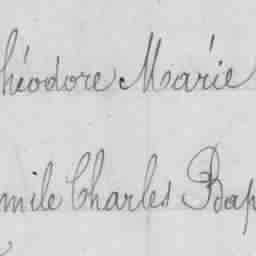 héodore Marie
mile Charles Bap